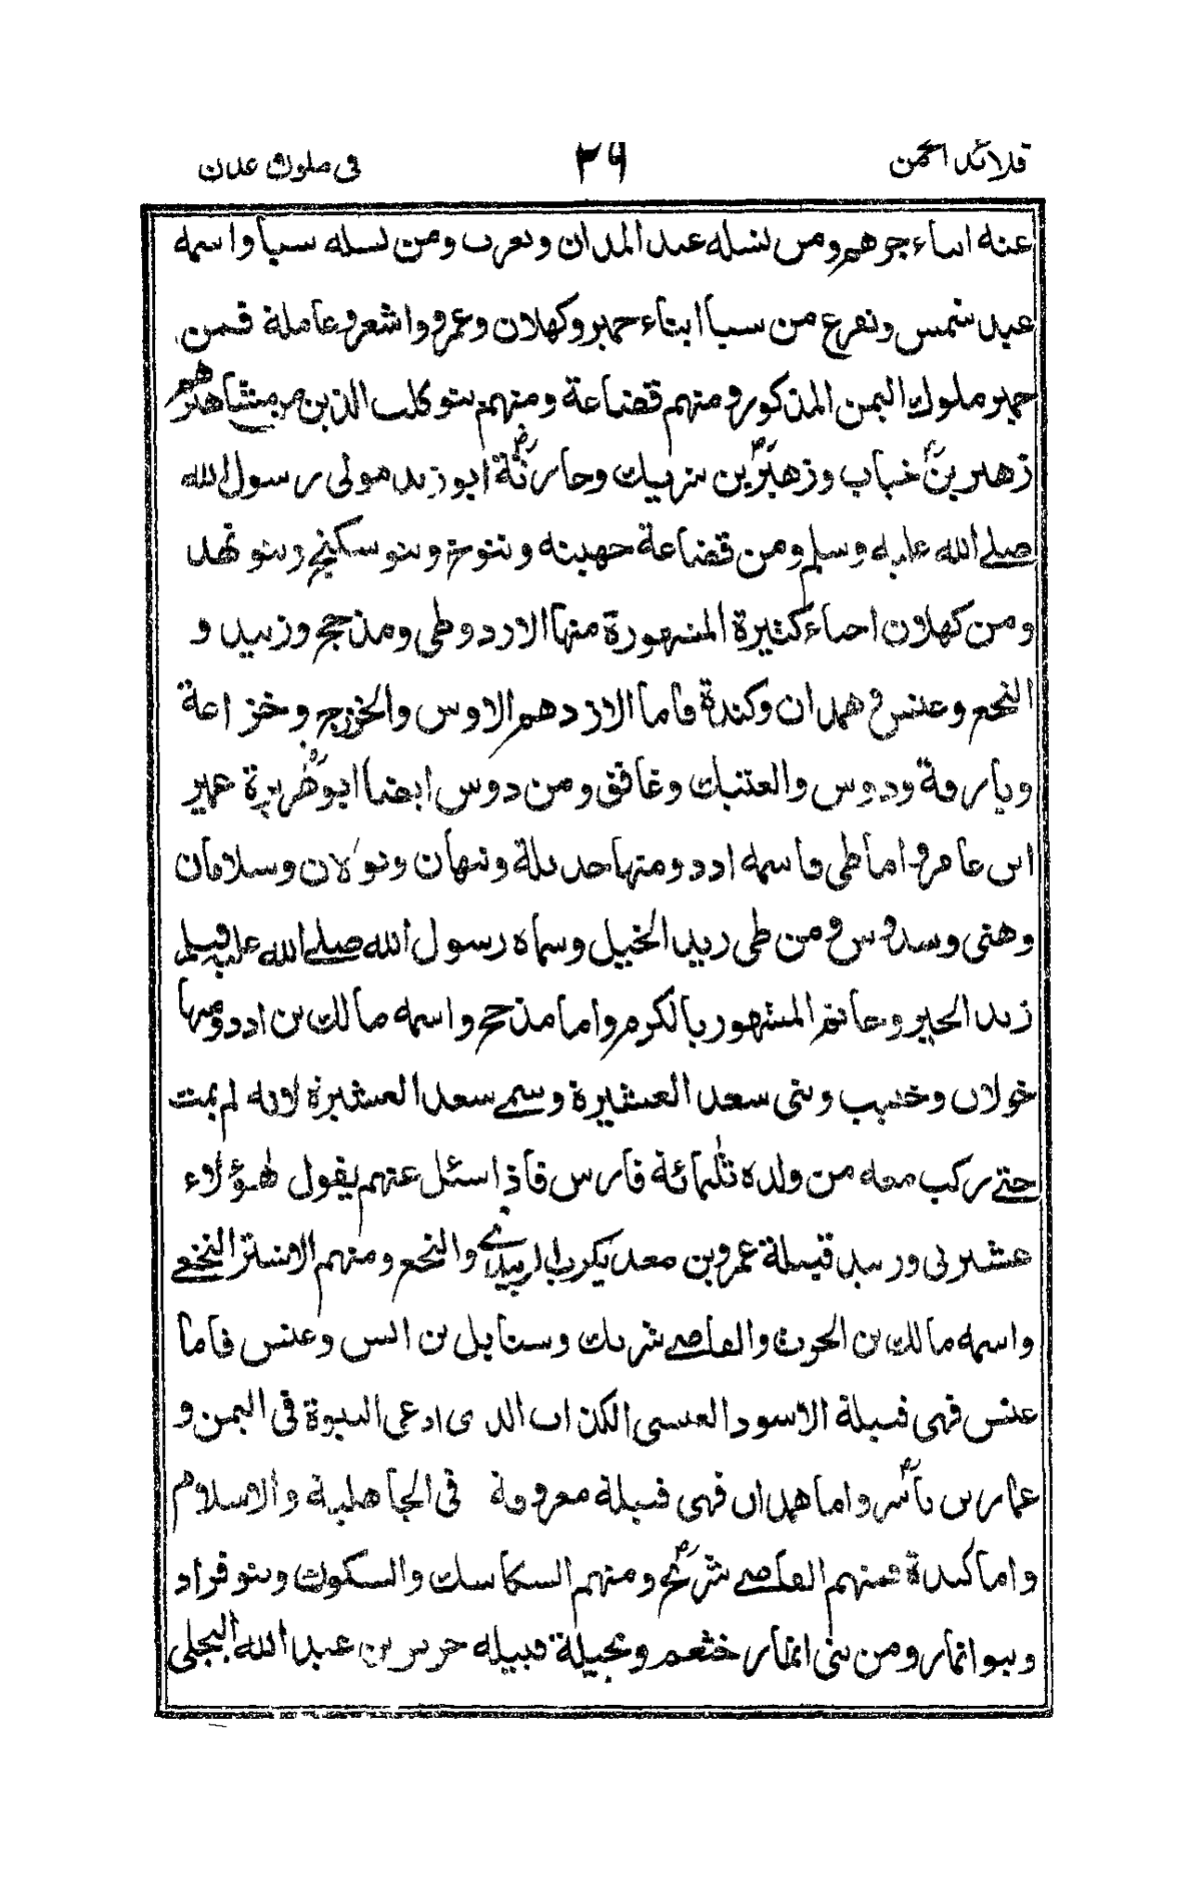 قلائد الجمن ٢٩ فى ملوك عدن
عنه ابناء جرهم ومن نسله عبد المدان ويعرب ومن نسله سبا واسمه
عبد شمس وتفرع من سبا ابناء حمير وكهلان وعمرو واشعر وعاملة فمن
حمير ملوك اليمن المذكور ومنهم قضاعة ومنهم بنو كلب الذين من مشاهيرهم
زهير بن خباب وزهير بن شريك وحارثة ابو زيد مولى رسول الله
صلى الله عليه وسلم ومن قضاعة جهينه وتنوخ وبنو سكينح وبنو نهد
ومن كهلان احياء كثيرة المشهورة منها الازد وطى ومذحج وزبيد و
النخع وعنس و همدان وكندة فاما الازد هم الاوس والخزرج وخزاعة
وبارقة ودوس والعتيك وغافق ومن دوس ايضا ابو هريرة عمير
ابن عامر و اما طى فاسمه ادد ومنها جديلة ونبهان وبولان وسلامان
وهنى وسدوس ومن طى زيد الخيل وسماه رسول الله صلى الله عليه وسلم
زيد الخير وحاتم المشهور بالكرم واما مذحج واسمه مالك بن ادد ومنها
خولان وخبيب وبنى سعد العشيرة وسمى سعد العشيرة لانه لم يمت
حتى ركب معه من ولده ثلثمائة فارس فاذا سئل عنهم يقول هؤلاء
عشيرتى وزبيد قبيلة عمرو بن معد يكرب الزبيدى والنخع ومنهم الاشتر النخعى
واسمه مالك بن الحرث والقاضى شريك وسنابل بن انس وعنس فاما
عنس فهى قبيلة الاسود العنسى الكذاب الذى ادعى النبوة فى اليمن و
عمار بن ياسر واما همدان فهى قبيلة معروفة فى الجاهلية والاسلام
واما كندة فمنهم القاضى شريح ومنهم السكاسك والسكون وبنو قراد
وبنو انمار ومن بنى انمار خثعم وبجيلة قبيله جرير بن عبد الله البجلى